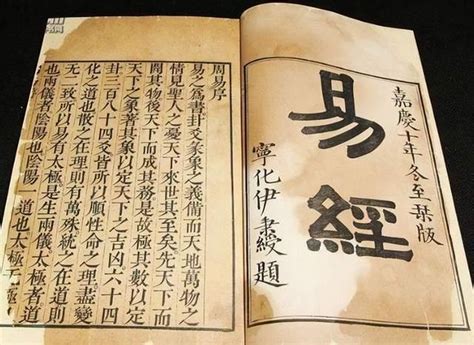 嘉慶十年冬至栞版
易經
寧化伊秉綬題
周易序
易之為書卦爻彖象之義備而天地萬物之
情見聖人之憂天下來世其至矣先天下而
開其物後天下而成其務是故極其數以定
天下之象著其象以定天下之吉凶六十四
卦三百八十四爻皆所以順性命之理盡變
化之道也散之在理則有萬殊統之在道則
无二致所以易有太極是生兩儀太極者道
也兩儀者陰陽也陰陽一道也太極